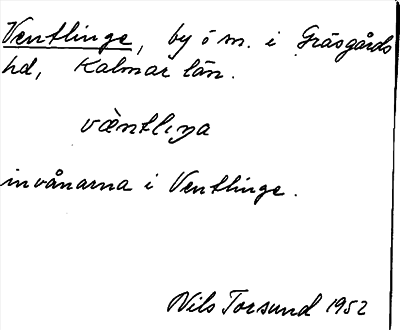 Ventlinge, by o sn. i Gräsgårds
hd, Kalmar län.
væ̀ntlıŋa
invånarna i Ventlinge.
Nils Torsund 1952